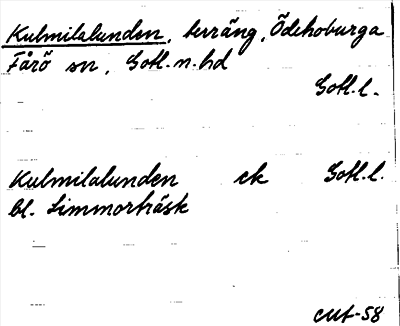 Kulmilalunden, terräng, Ödehoburga
Fårö sn, Gotl. n. hd
Gotl. l.
Kulmilalunden ek Gotl. l.
bl. Limmorträsk